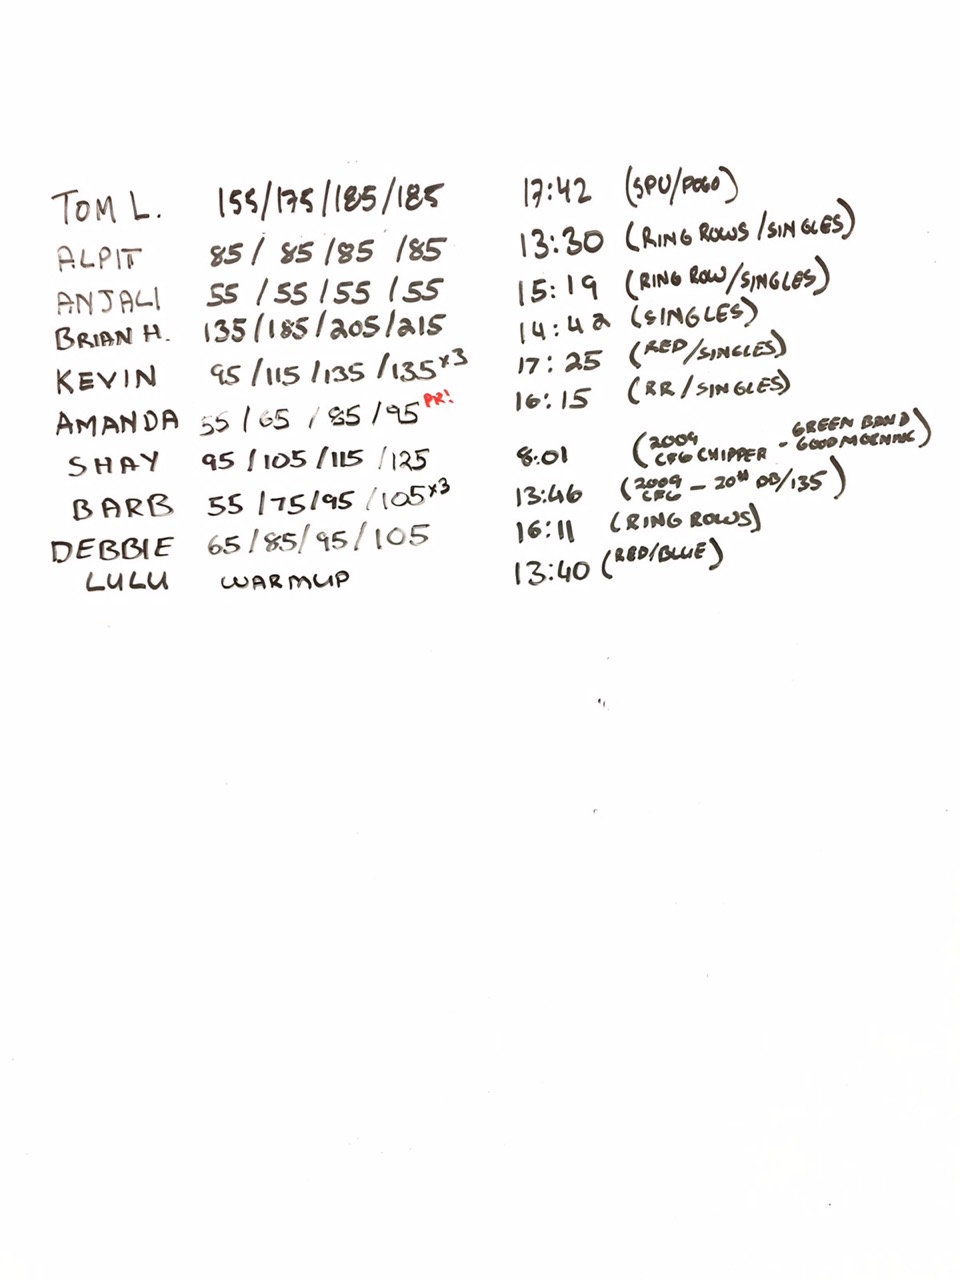 TOM L. 155/175/185/185 17:42 (SPU/POGO)
ALPIT 85/ 85/85 /85 13:30 (RING ROWS/SINGLES)
ANJALI 55 /55/55 /55 15:19 (RING ROW/SINGLES)
BRIAN H. 135/185/205/215 14:42 (SINGLES)
KEVIN 95/115/135/135x3 17:25 (RED/SINGLES)
AMANDA 55/65/85/95 PR! 16:15 (RR/SINGLES)
SHAY 95/105/115/125 8:01 (2009 CFG CHIPPER - GREEN BAND GOODMORNING)
BARB 55/75/95/105x3 13:46 (2009 CFG - 20# DB/135)
DEBBIE 65/85/95/105 16:11 (RING ROWS)
LULU WARMUP 13:40 (RED/BLUE)